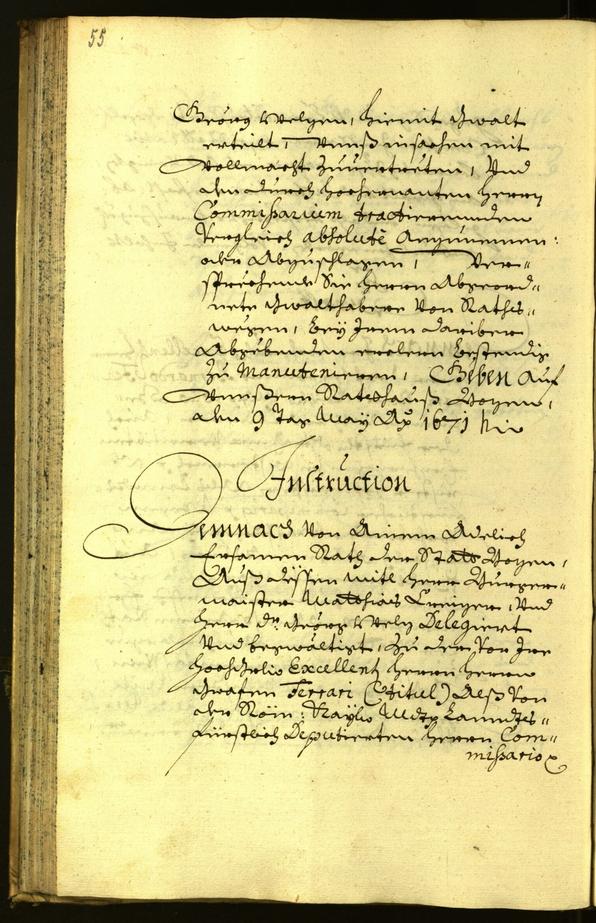 55
Georg Welzen, hiemit Gwalt
erteilt, Unnß in sachen mit
Vollmacht zuuertretten, Und
den durch hochernanten Herrn
Commissarium tractierennden
Vergleich absolutè Anzunemen:
oder Abzuschlagen, Ver-
sprechende Sie Herrn Abgeord-
nete Gwalthabere Von Raths
wegen, bey Irem darüber
Abgebenden erclern bestendig
zu Manutenieren, Geben Auf
Unnserm Rathshauß Bozen,
den 9 Tag May Ao 1671
Instruction
Demnach Von Ainem Adelich
Ersamen Rath der Statt Bozen,
Auß dessen mitl Herr Burger-
maister Matthias Kreizer, Und
Herr Dr. Georg Welz Delegiert
Und begwältigt, zu der Vor Ire
Hochgrl: Excellenz Herrn Herrn
Grafen Ferrari (Titul) Alß Von
der Röm: Kayl: Mtt: Lanndts-
fürstlich Deputierten Herrn Com-
missario